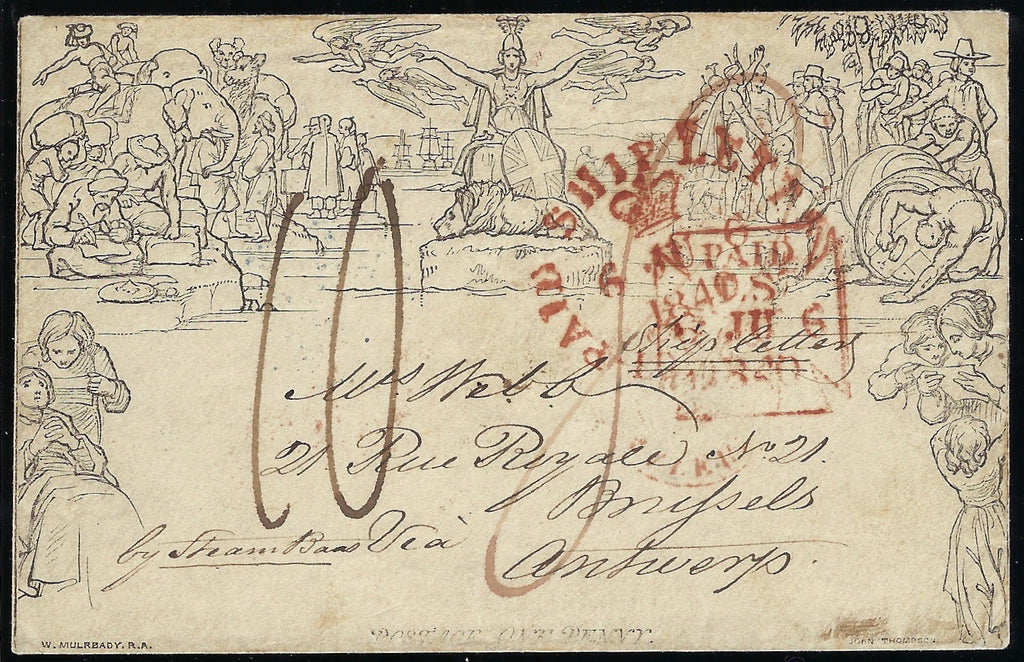 PAID SHIP LETTER
PAID
1840
Ship letter
Mrs Webb
21 Rue Royale No. 21.
Brussels
by Steam Boat Via
Antwerp.
10
POSTAGE ONE PENNY.
W. MULREADY. R.A.
JOHN THOMPSON